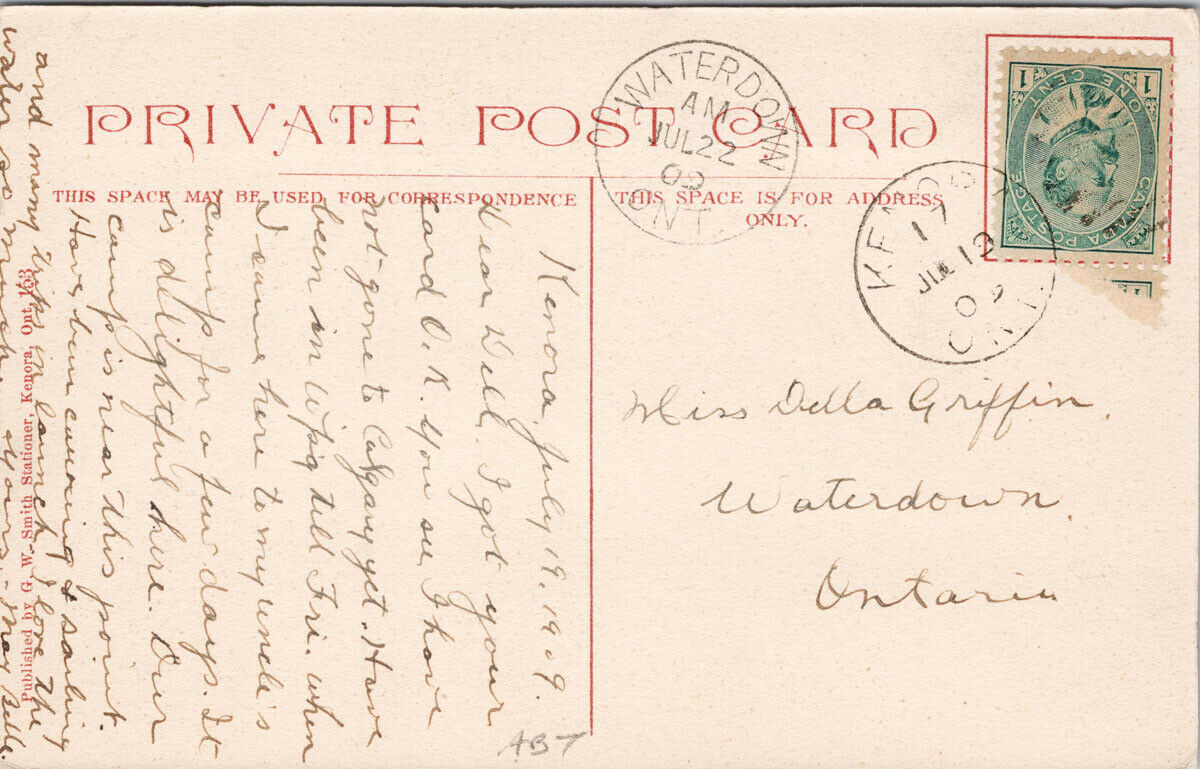 PRIVATE POST CARD
THIS SPACE MAY BE USED FOR CORRESPONDENCE
THIS SPACE IS FOR ADDRESS
ONLY.
WATERDOWN
AM
JUL 22
09
ONT.
KENORA
17
JUL 19
09
ONT.
1 1
ONE CENT
CANADA POSTAGE
Miss Della Griffin.
Waterdown.
Ontario
Kenora, July 19, 1909.
Dear Dell. I got your
card O.K. You see I have
not gone to Calgary yet. Have
been in Wpg till Fri. when
I came here to my uncle's
camp for a few days. It
is delightful here. Our
camp is near this point.
Have been canoeing & sailing
and many trips in launch. I love the
water so much. Yours, May Belle.
Published by G. W. Smith Stationer, Kenora, Ont. 153
AB7